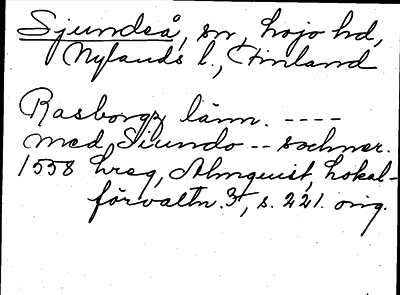 Sjundeå, sn, Lojo hd,
Nylands l., Finland
Raseborgs länn. ----
med Siundo -- sochner.
1558 hreg, Almquist, Lokal-
förvaltn. 3, s. 221. orig.